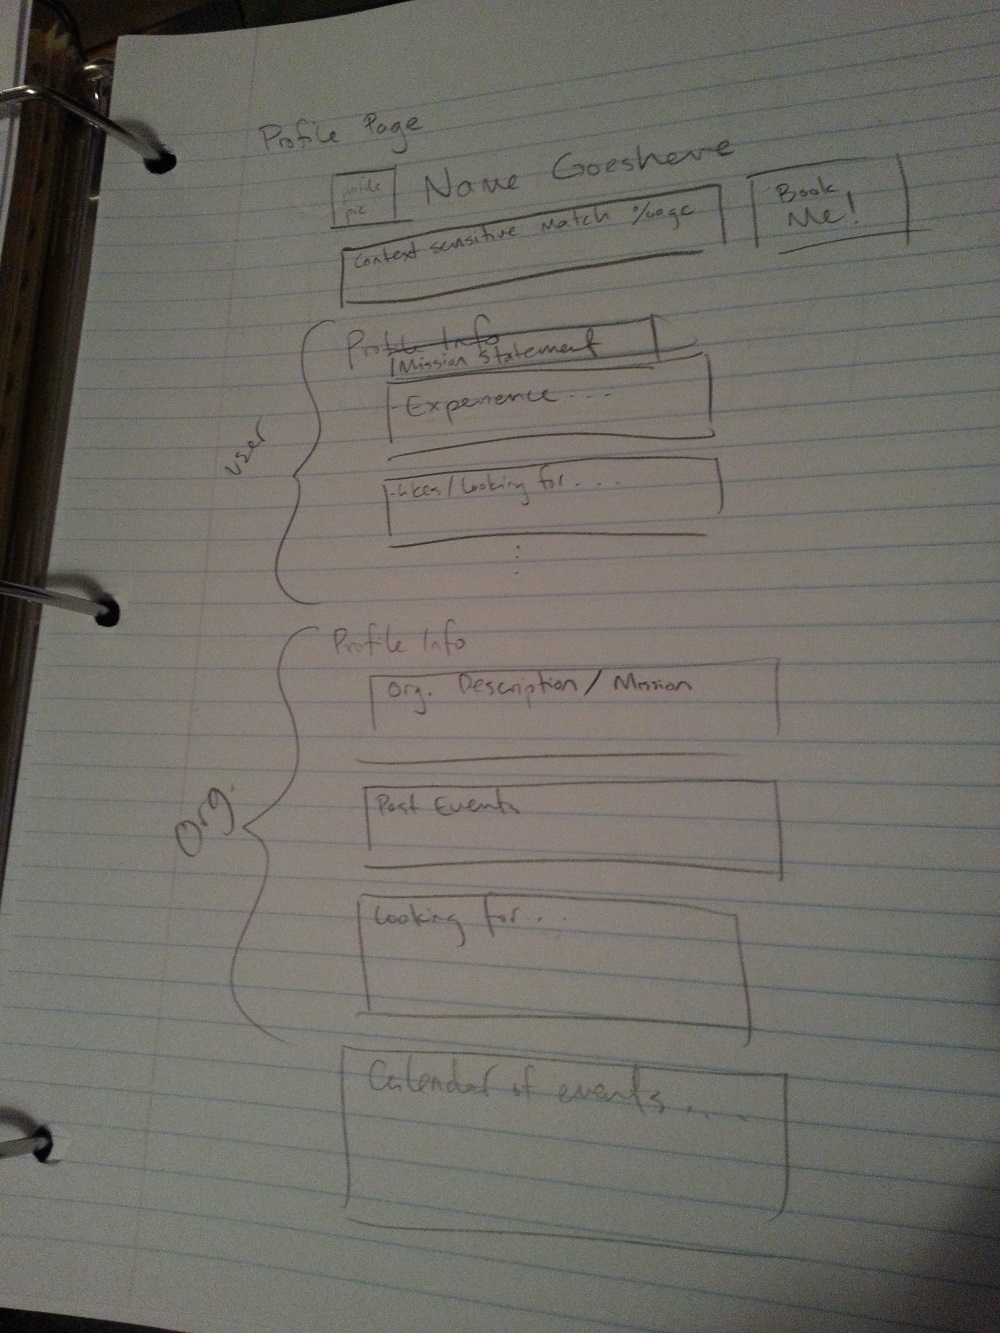 Profile Page
profile
pic
Name Goeshere
Book
Me!
Context sensitive Match %age
Profile Info
Mission Statement
-Experience ...
user
-Likes/Looking for....
Profile Info
Org. Description/Mission
Org.
Past Events
Looking for...
Calendar of events....